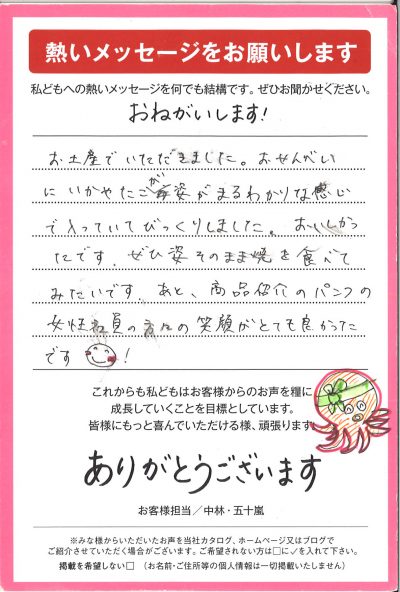 熱いメッセージをお願いします
私どもへの熱いメッセージを何でも結構です。ぜひお聞かせください。
おねがいします!
お土産でいただきました。おせんべい
にいかやたこが姿がまるわかりな感じ
で入っていてびっくりしました。おいしかっ
たです。ぜひ姿そのまま焼を食べて
みたいです。あと、商品紹介のパンフの
女性店員の方々の笑顔がとても良かった
です!
これからも私どもはお客様からのお声を糧に
成長していくことを目標としています。
皆様にもっと喜んでいただける様、頑張ります。
ありがとうございます
お客様担当/中林・五十嵐
※みな様からいただいたお声を当社カタログ、ホームページ又はブログで
ご紹介させていただく場合がございます。ご希望されない方は□に✓を入れて下さい。
掲載を希望しない□ (お名前・ご住所等の個人情報は一切掲載いたしません)